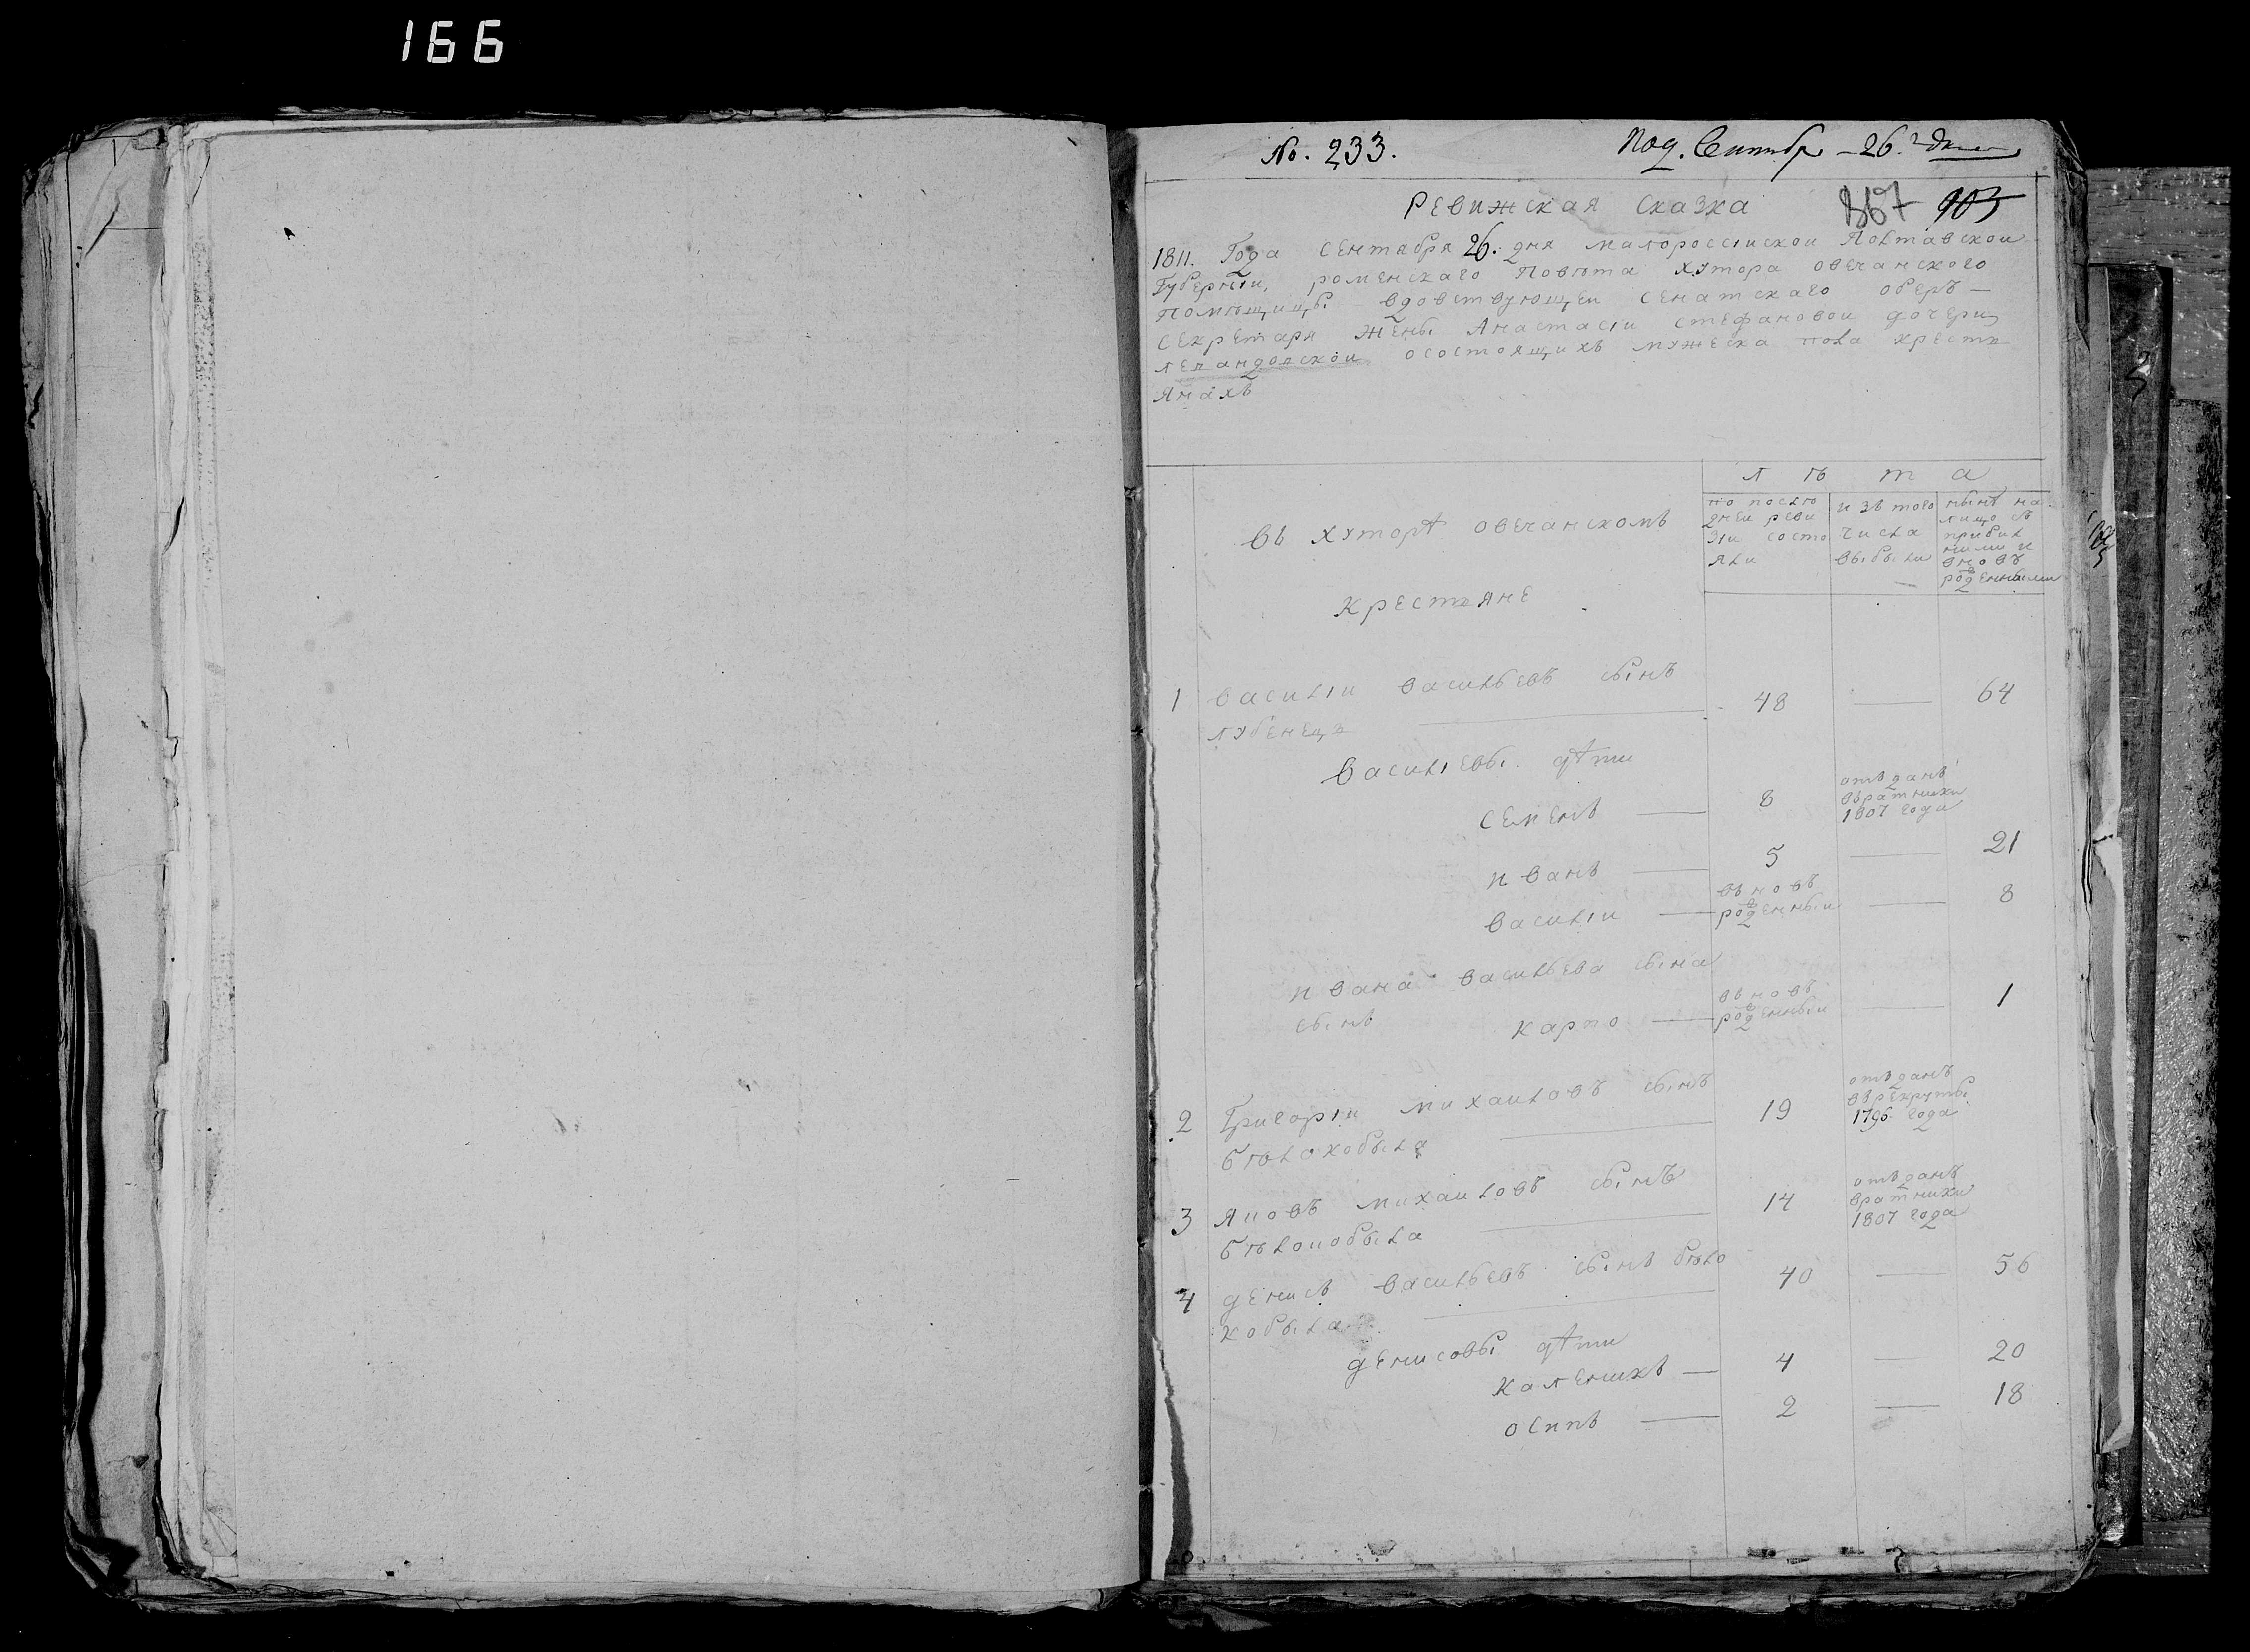 166
No. 233.
Под. Сентябр - 26.го дня
Ревижская сказка
867 903
1811. Года сентября 26. дня малороссиской Полтавской
Губернiи, роменского повѣта хутора овечанского
помѣщицы вдовствующей сенатскаго оберъ —
секретаря жены Анастасiи стефановой дочери
о состоящихъ мужеска пола крестъ
янахъ
лѣта
въ хуторѣ овечанскомъ
крестъяне
по послѣ
дней реви
зiи состо
яли
изъ того
числа
выбыли
нынѣ на
лицо съ
прибыл
ними и
вновъ
рожденными
1 василiи васильевъ сынъ 48 — 64
лубенецъ
василiевы дѣти
семенъ — 8 отъданъ
въратники
1807 года
иванъ — 5 — 21
василiи — въновъ
рожденныи — 8
ивана васильева сына
сынъ карпо — въновъ
рожденныи — 1
2 Григорiи михаиловъ сынъ 19 отъданъ
върекруты
1796. года
бѣлокобыла
3 Яковъ михаиловъ сынъ 14 отъданъ
вратники
1807 года
бѣлокобыла
4 денисъ васильевъ сынъ бѣло 40 — 56
кобыла
денисовы дѣти
каленикъ — 4 — 20
осипъ — 2 — 18